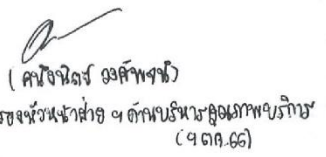 ( คนึงนิตย์ วงศ์พจน์)
รองหัวหน้าฝ่าย ฯ ด้านบริหารคุณภาพบริการ
(9 ตค.66)